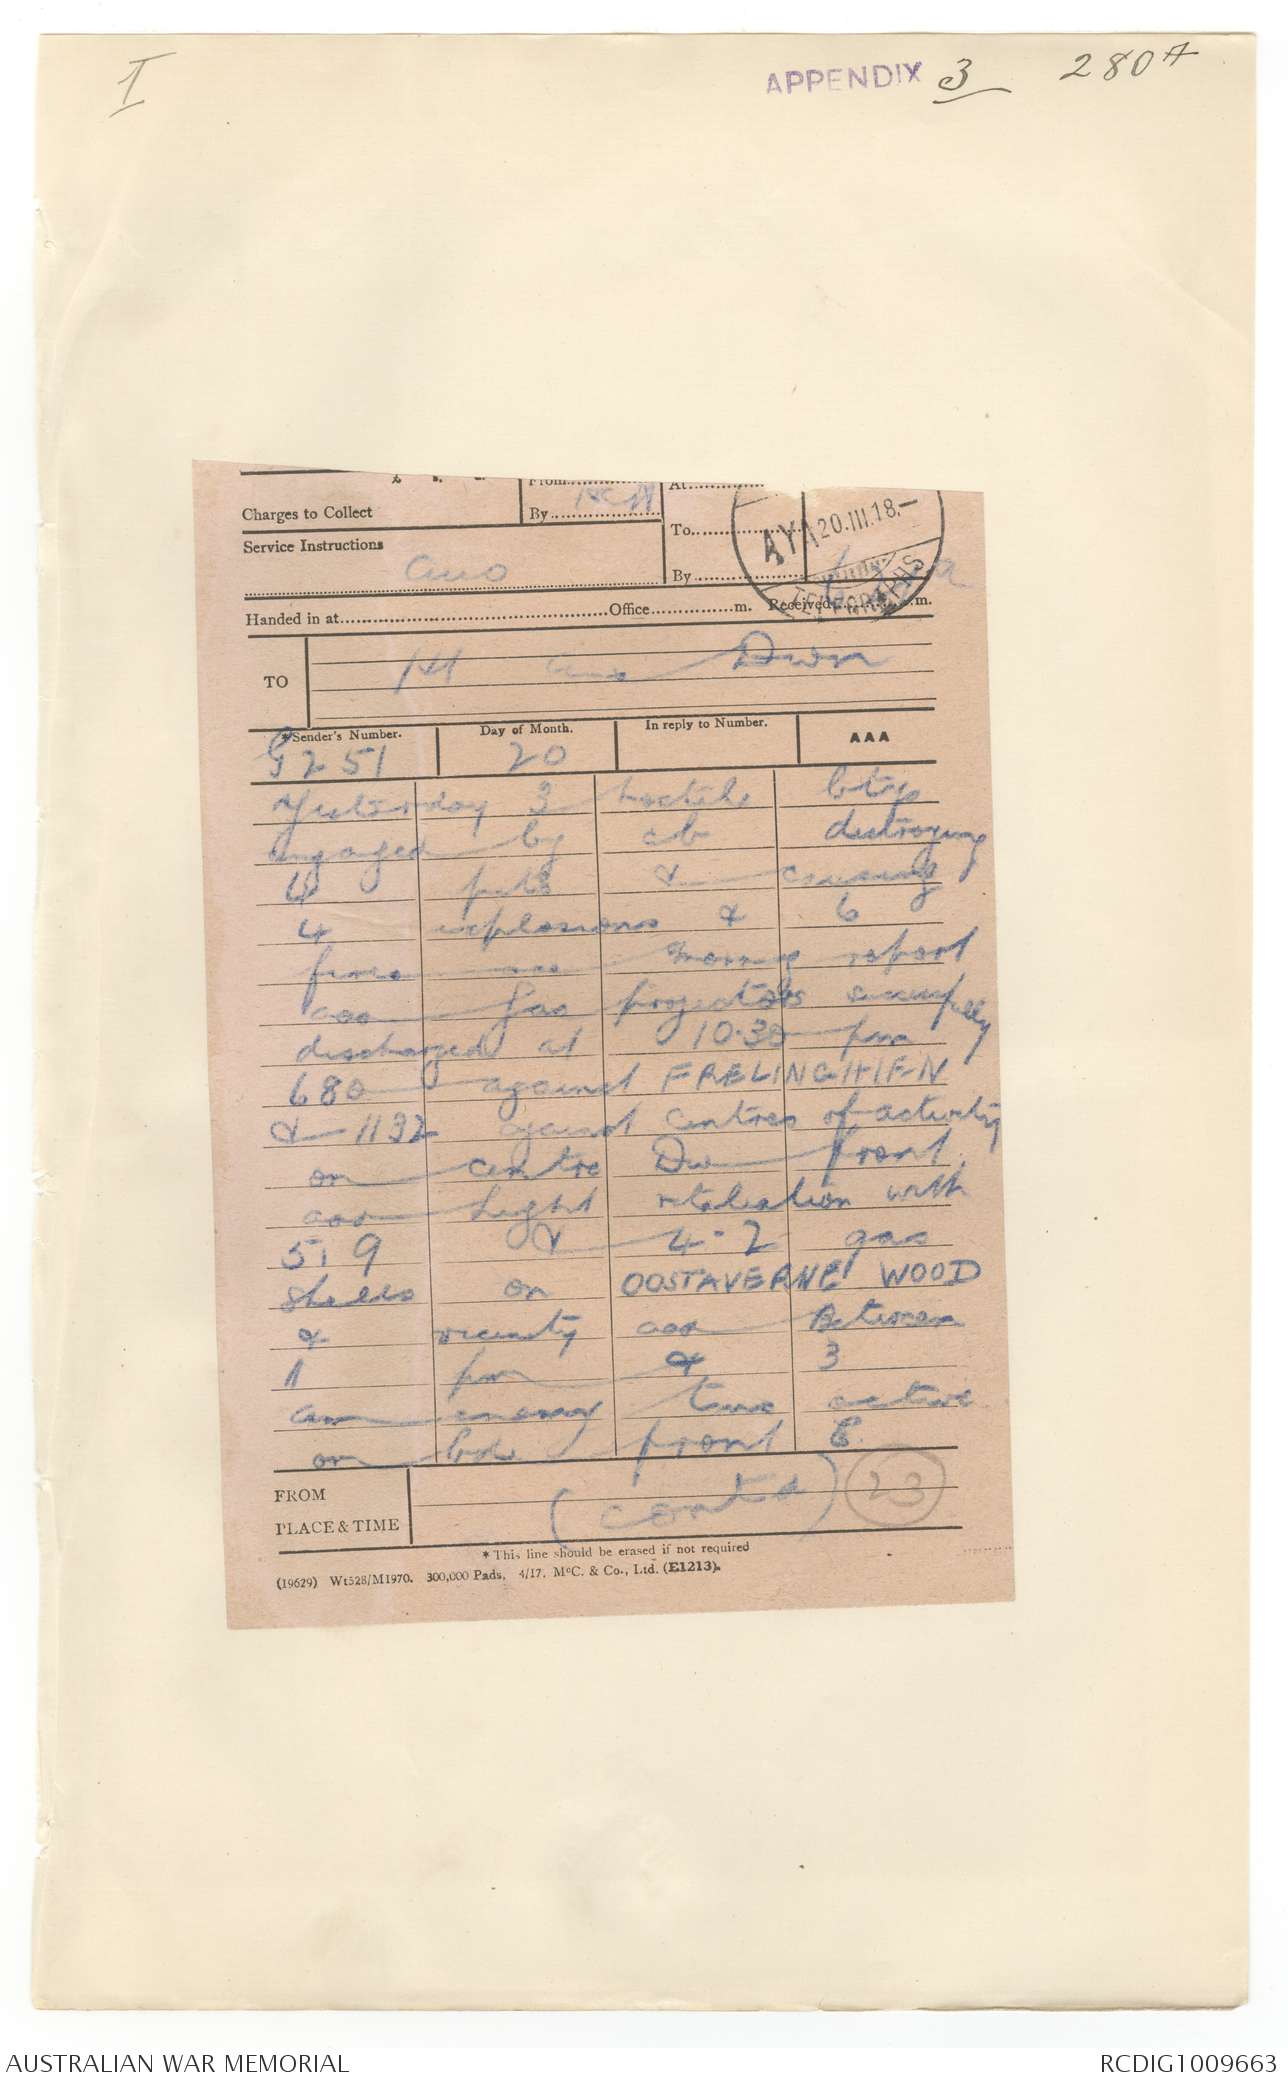 I
APPENDIX 3 280A
£ s. d.
Charges to Collect
From
By
At
To
By
AYA 20.III.18.
TELEGRAPHS
Service Instructions
Handed in at Office m. Received m.
TO 1st Aus Divn
*Sender's Number. Day of Month. In reply to Number. AAA
G251 20
Yesterday 3 hostile btys
engaged by cb destroying
4 pits & causing
4 explosions & 6
fires aaa Morning report
aaa Gas projectors successfully
discharged at 10.30 pm
680 against FRELINGHIEN
& 1132 against centres of activity
on centre Div front
aaa Light retaliation with
5.9 & 4.2 gas
shells on OOSTAVERNE WOOD
& vicinity aaa Between
1 pm & 3
am enemy tms active
on Bde front E
FROM
PLACE & TIME
(contd) 23
*This line should be erased if not required
(19629) Wt528/M1970. 300,000 Pads. 4/17. McC. & Co., Ltd. (E1213).
AUSTRALIAN WAR MEMORIAL
RCDIG1009663